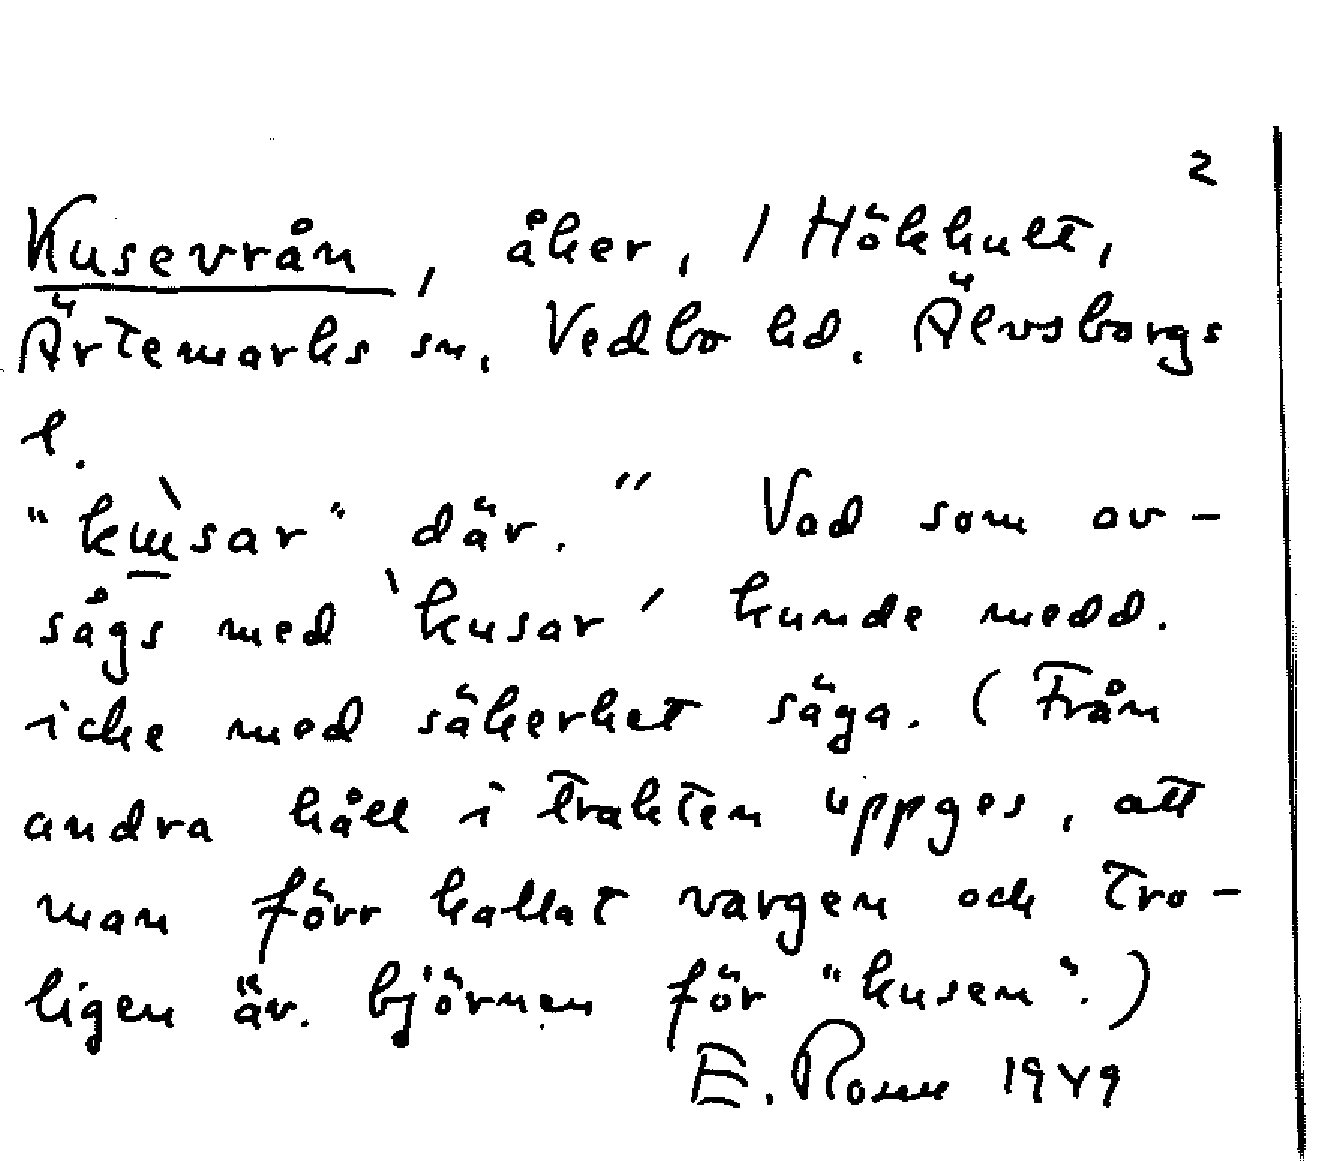 2
Kusevrån, åker, / Hökhult,
Ärtemarks sn, Vedbo hd. Älvsborgs
l.
"kɯ̀sar" där." Vad som av-
sågs med 'kusar' kunde medd.
icke med säkerhet säga. (Från
andra håll i trakten uppges, att
man förr kallat vargen och tro-
ligen äv. björnen för "kusen".)
E. Ronn 1949